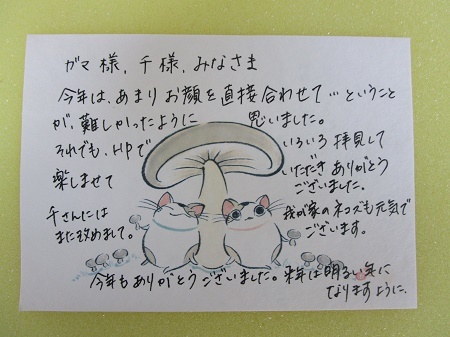 ガマ様,千様,みなさま
今年は、あまりお顔を直接合わせて…ということ
が、難しかったように思いました。
それでも、HPでいろいろ拝見して
楽しませていただきありがとう
ございました。
千さんには
また改めまして。
我が家のネコズも元気で
ございます。
今年もありがとうございました。来年は明るい年に
なりますように、